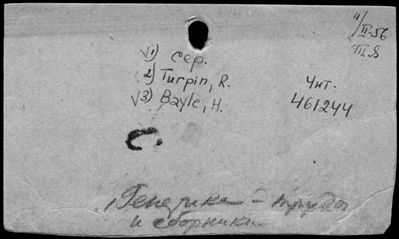 11/II-56
III.8
√1) сер.
2) Turpin, R.
√3) Bayle, H.
Чит.
461244
Генетика - труды
и сборники